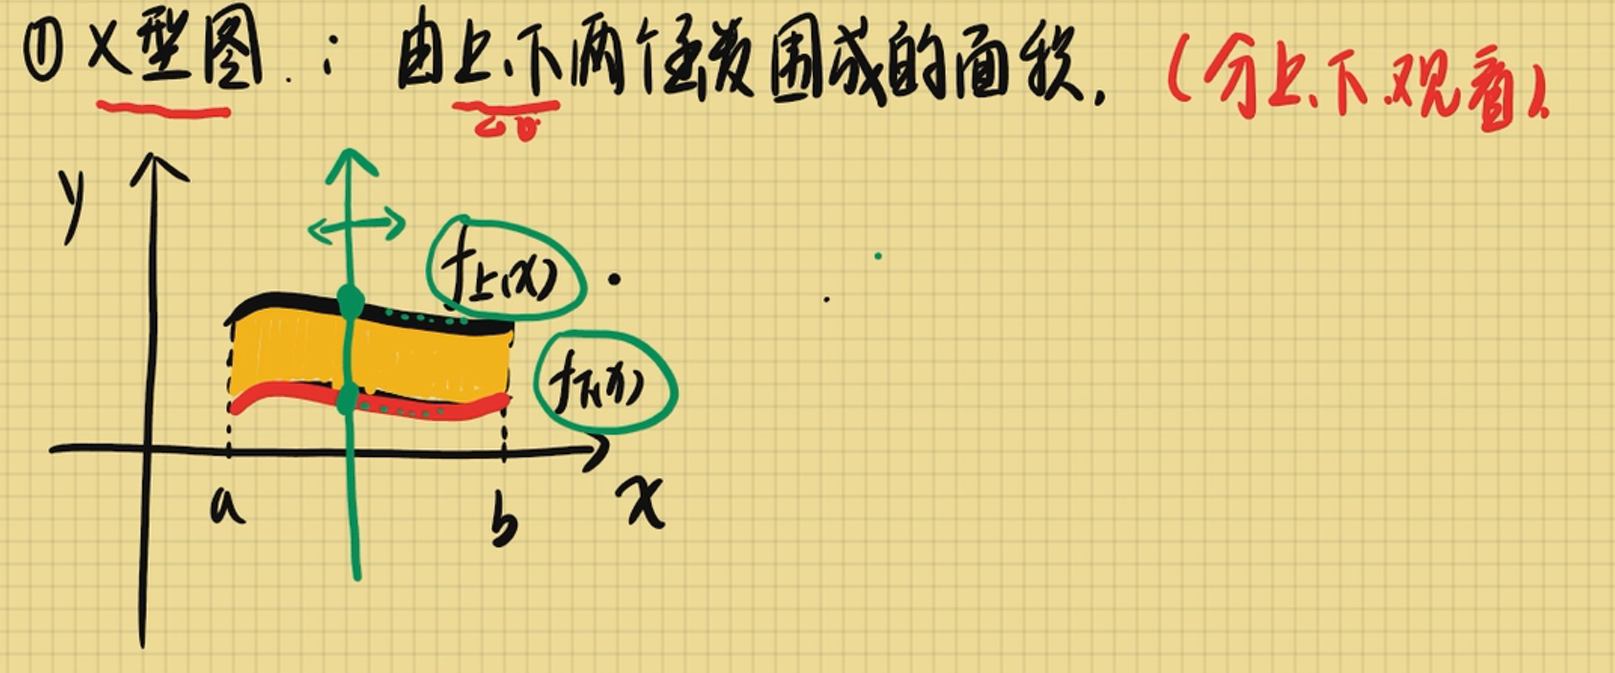 ① X型图：由上、下两个函数围成的面积. (分上、下观看).
y
f上(x)
f下(x)
a
b
x